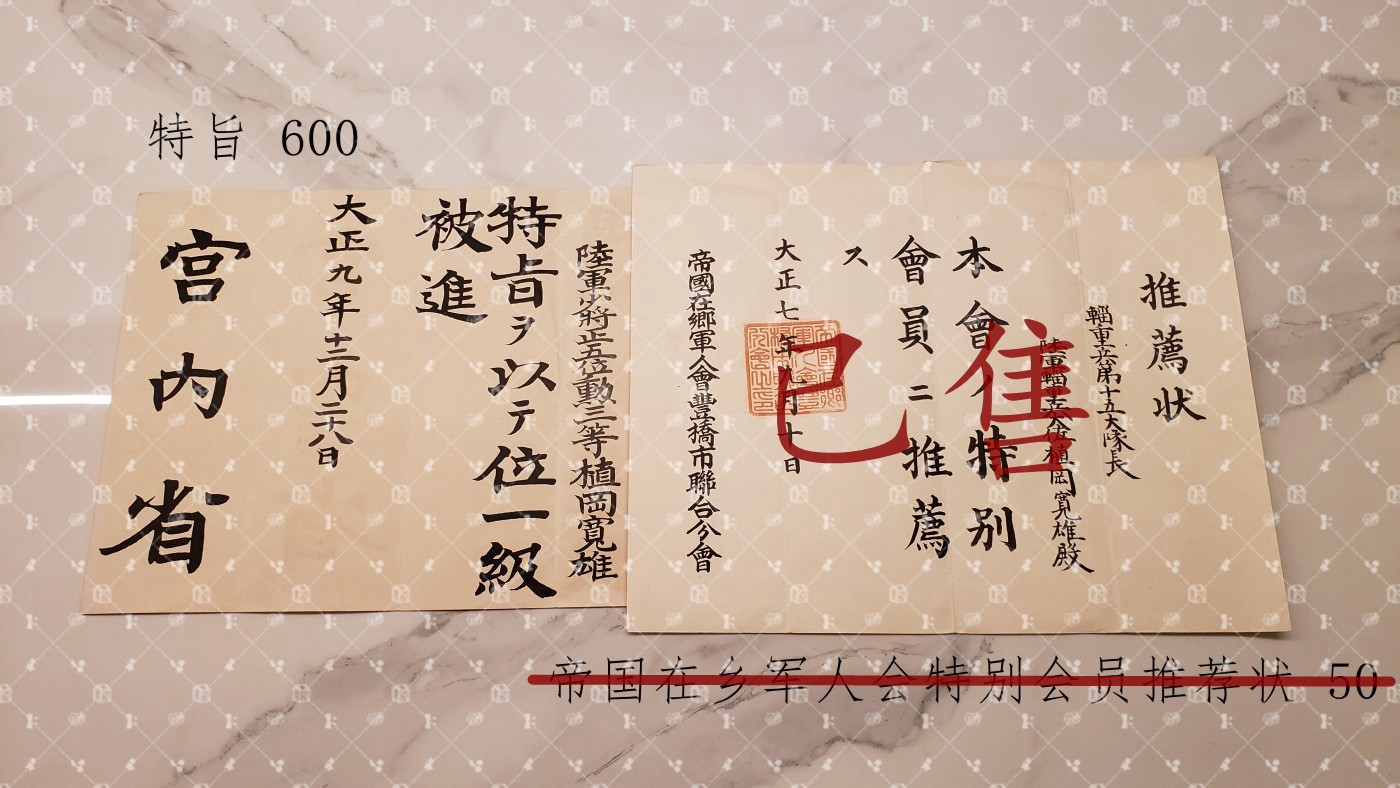 特旨 600
陸軍少將正五位勳三等植岡寬雄
特旨ヲ以テ位一級
被進
大正九年十二月二十八日
宮内省
推薦状
輜重兵第十五大隊長
陸軍輜重兵大佐植岡寬雄殿
本會ノ特别
會員ニ推薦
ス
大正七年九月十日
帝國在鄉軍人會豐橋市聯合分會
已售
帝国在乡军人会特别会员推荐状 50